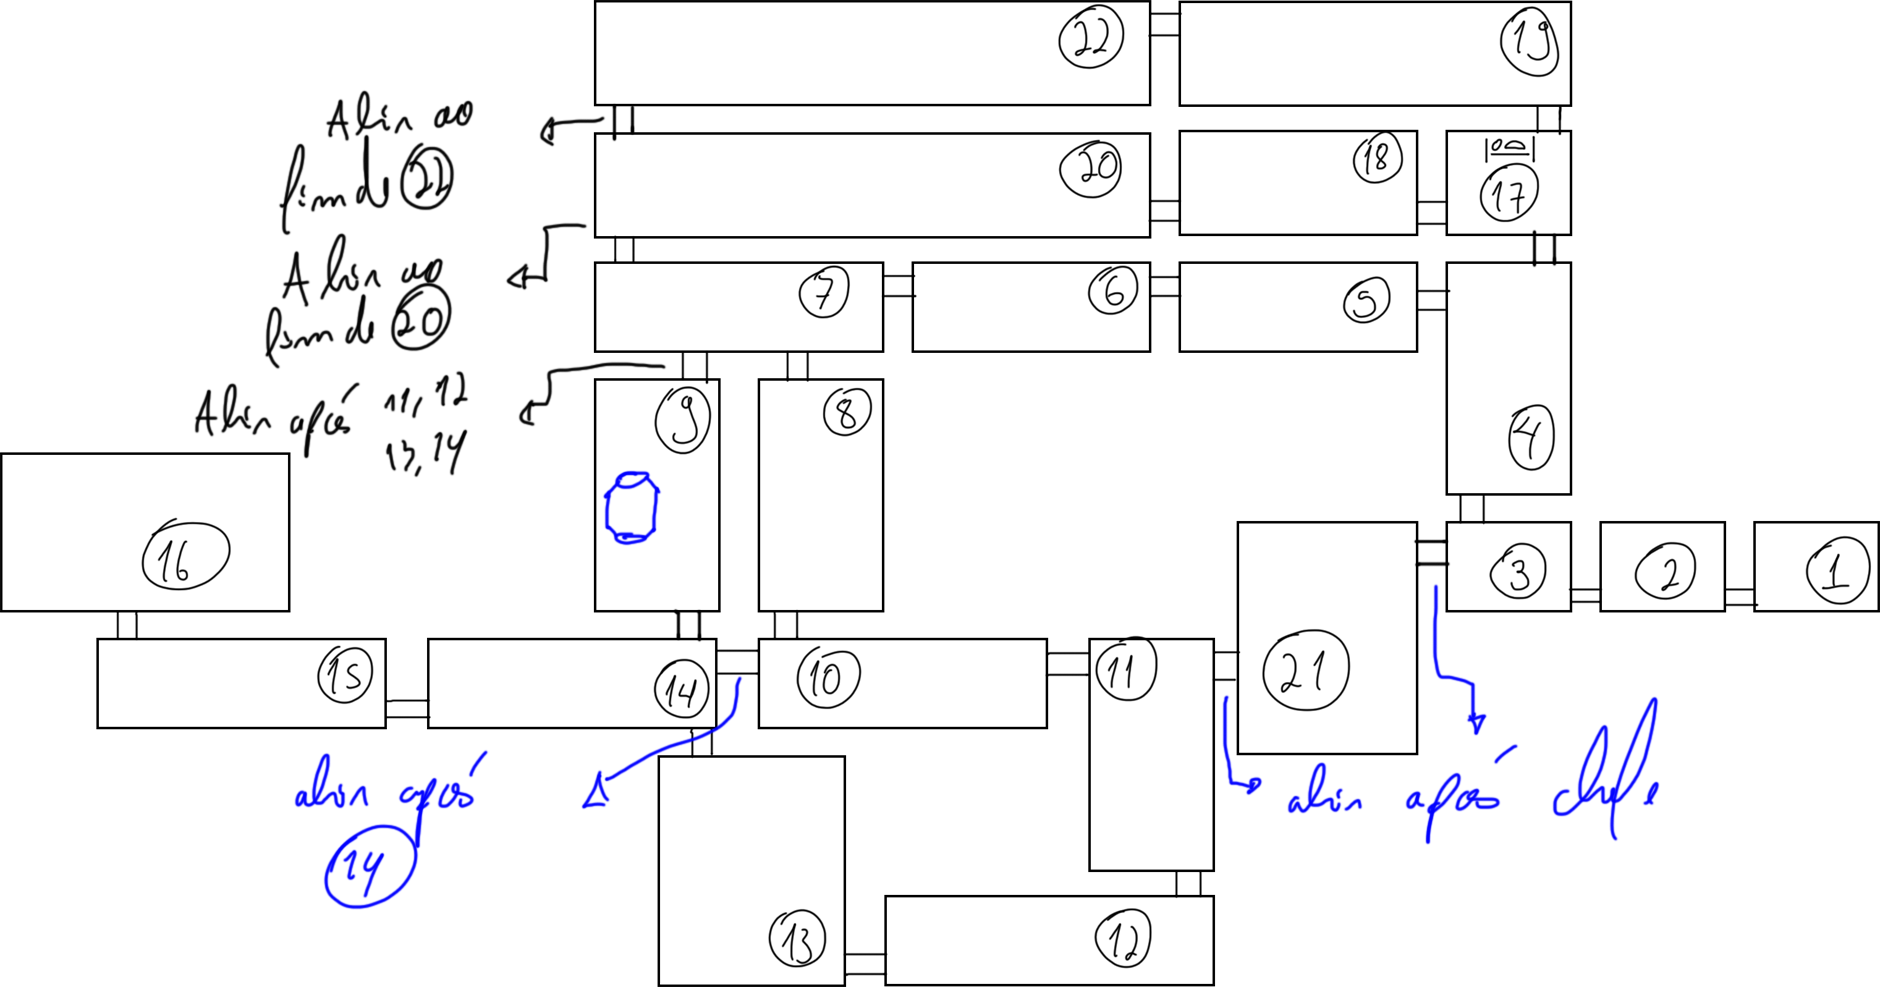 22
19
Abrir ao
fim de 22
20
18
17
Abrir ao
fim de 20
7
6
5
Abrir após 11, 12
13, 14
9
8
4
16
3
2
1
15
14
10
11
21
abrir após
14
abrir após chefe
13
12